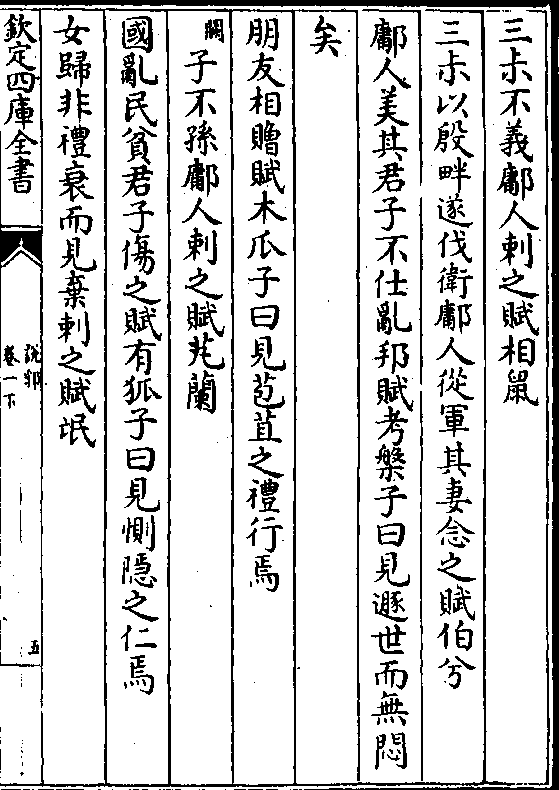 三尗不義鄘人刺之賦相鼠
三尗以殷畔遂伐衛鄘人從軍其妻念之賦伯兮
鄘人美其君子不仕亂邦賦考槃子曰見遯世而無悶
矣
朋友相贈賦木瓜子曰見苞苴之禮行焉
闕子不孫鄘人刺之賦芄蘭
國亂民貧君子傷之賦有狐子曰見惻隠之仁焉
女歸非禮衰而見棄刺之賦氓
欽定四庫全書
說郛
卷一下
五